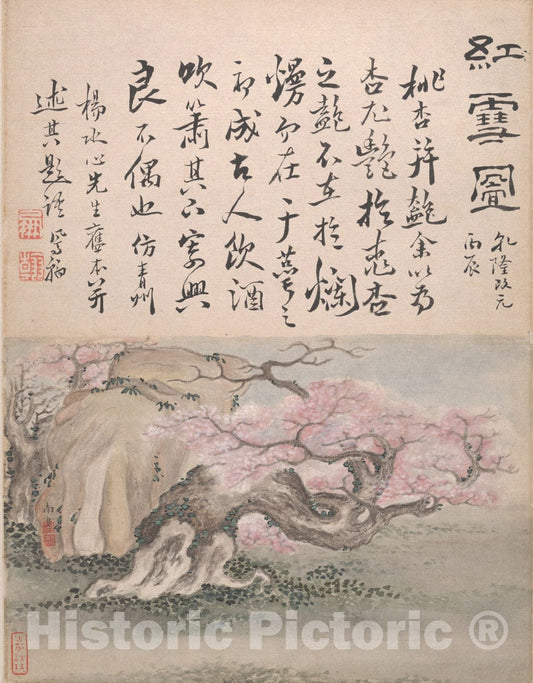 紅雪圖
乾隆改元
丙辰
桃杏并艷余以為
杏尤艷於桃杏
之艷不在於爛
熳而在于萼之
初成古人飲酒
吹簫其下寄興
良不偶也仿青州
楊水心先生舊本并
述其題語
Historic Pictoric ®